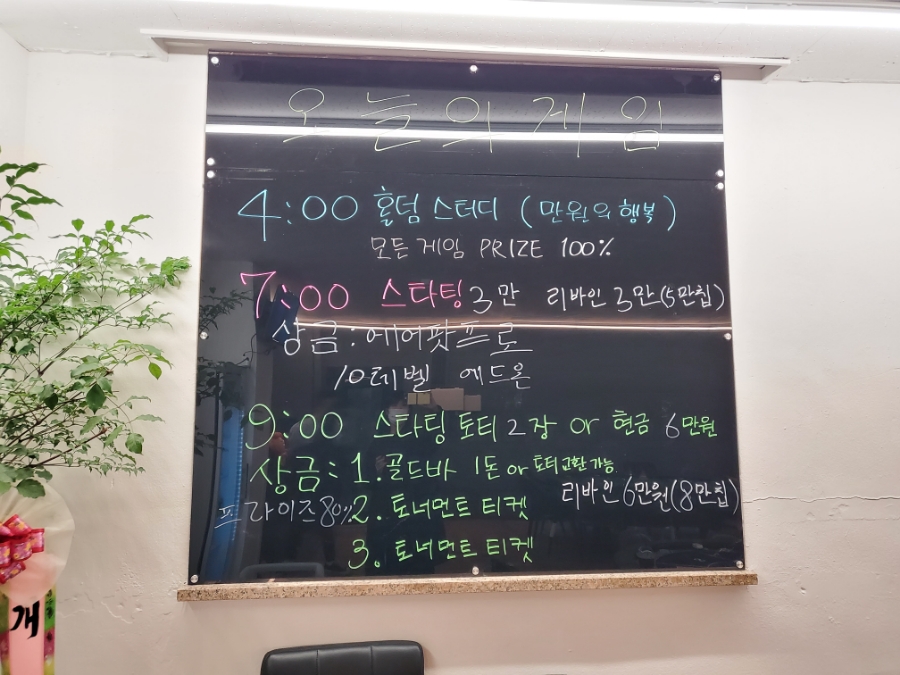 오늘의 게임
4:00 홀덤 스터디 (만원의 행복)
모든 게임 PRIZE 100%
7:00 스타팅 3만 리바인 3만(5만칩)
상금: 에어팟프로
10데벨 에드온
9:00 스타팅 토티 2장 or 현금 6만원
상금: 1. 골드바 1돈 or 토티교환 가능
리바인 6만원(8만칩)
프라이즈 80% 2. 토너먼트 티켓
3. 토너먼트 티켓
개